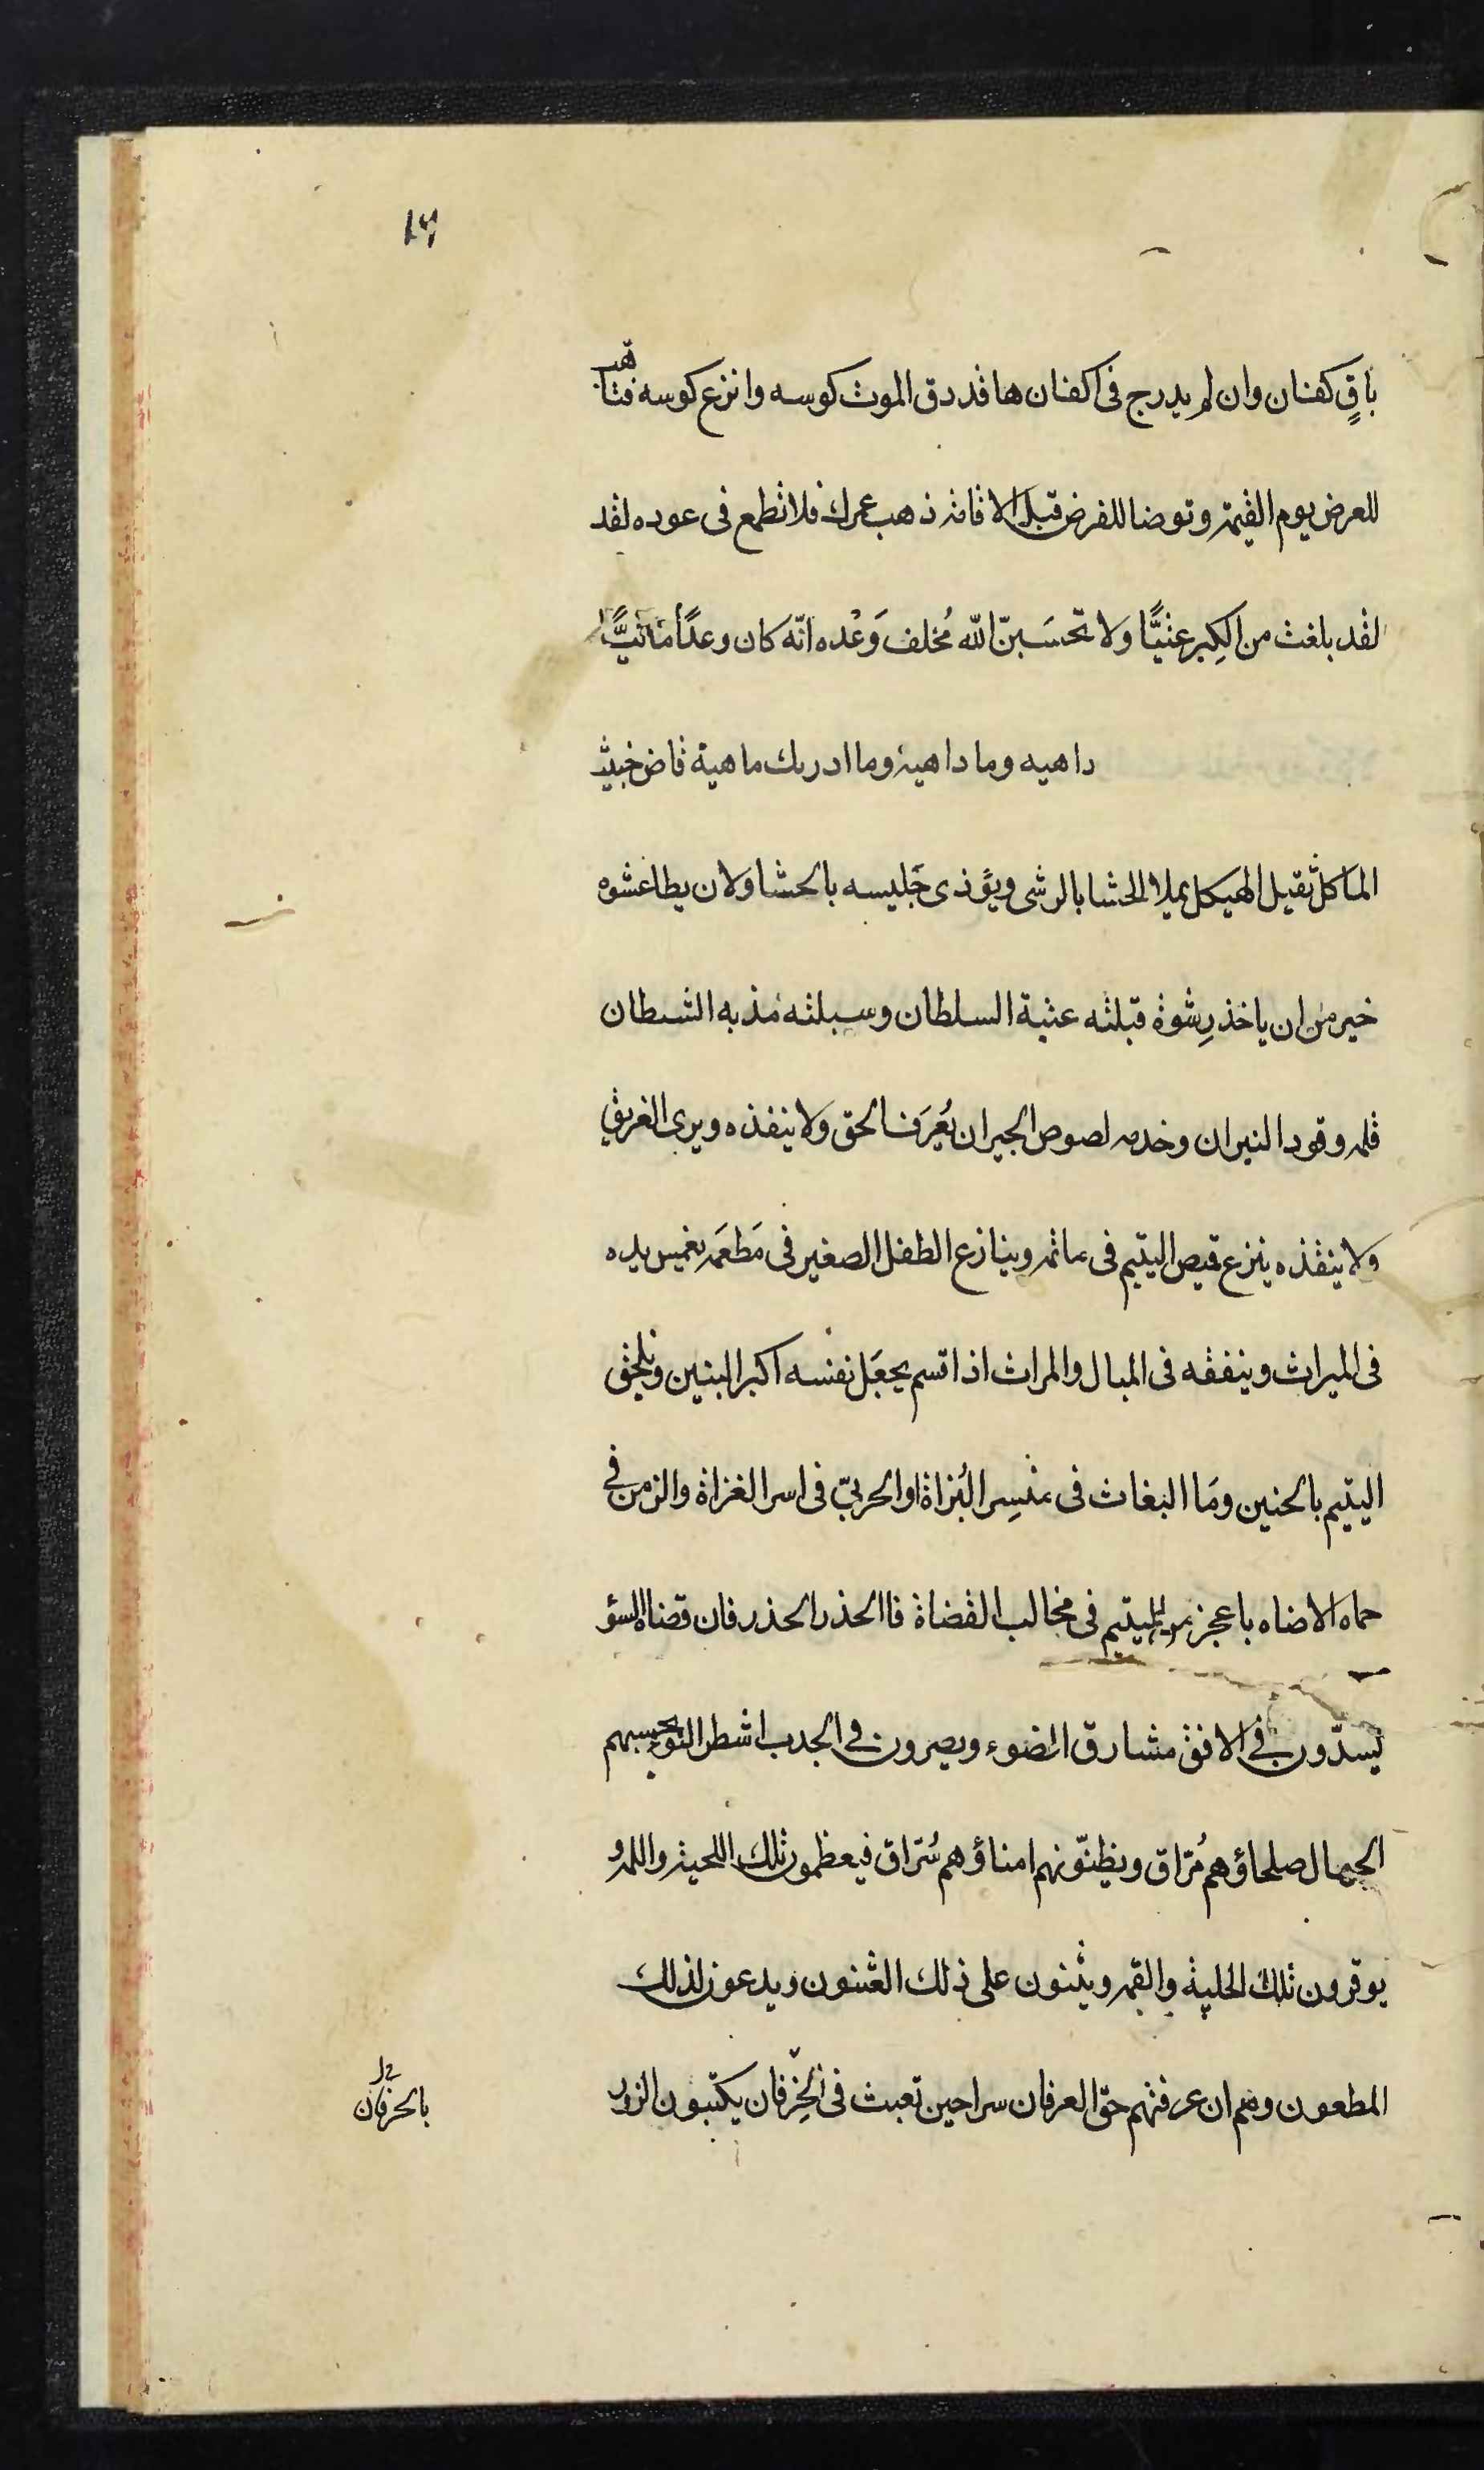 ١٦
باقٍ كفنان وان لم يدرج فى اكفنان ها قد دق الموت كوسه وانزع كوسه فتاهب
للعرض يوم القيمة وتوضا للفرض قبل الاقامة ذهب عمرك فلا تطمع فى عوده لقد
لقد بلغت من الكِبر عتيًّا ولا تحسَبنّ الله مُخلف وَعْده انّه كان وعدًا ماتيًّا
داهيه وما داهية وما ادريك ماهية قاض خبيث
الماكل ثقيل الهيكل يملا الحشا بالرشى ويؤذى جَليسه بالحشا ولان يطا عشوه
خير من ان ياخذ رِشوة قبلته عتبة السلطان وسبلته مذبه الشيطان
قلمه وقود النيران وخدمه لصوص الجيران يُعرَف الحق ولا ينفذه ويرى الغريق
ولا ينقذه ينزع قميص اليتيم فى ماتمه وينازع الطفل الصغير فى مَطعَمه يغمس يده
فى الميراث وينفقه فى المبال والمراث اذا قسم يجعَل نفسه اكبر البنين ويلحق
اليتيم بالجنين ومَا البغاث فى منسِر البُزاة او الحربىّ فى اسر الغزاة والزمن فى
حماه الاضاه باعجز من اليتيم فى مخالب القضاة فا الحذر الحذر فان قضاة السؤ
يسدّون فى الافق مشارق الضوء ويصرون فى الجدب اشطر النوء يحسبهم
الجهال صلحاؤهم مُرّاق ويظنّونهم امناؤهم سُرّاق فيعظمون تلك اللحية واللمه و
يوقرون تلك الحلية والقمه ويثنون على ذلك العثنون ويدعون لذلك
المطعون وهم ان عرفتهم حقّ العرفان سراحين تعبث فى الخِرفان يكتبون الزور
بالخرفان